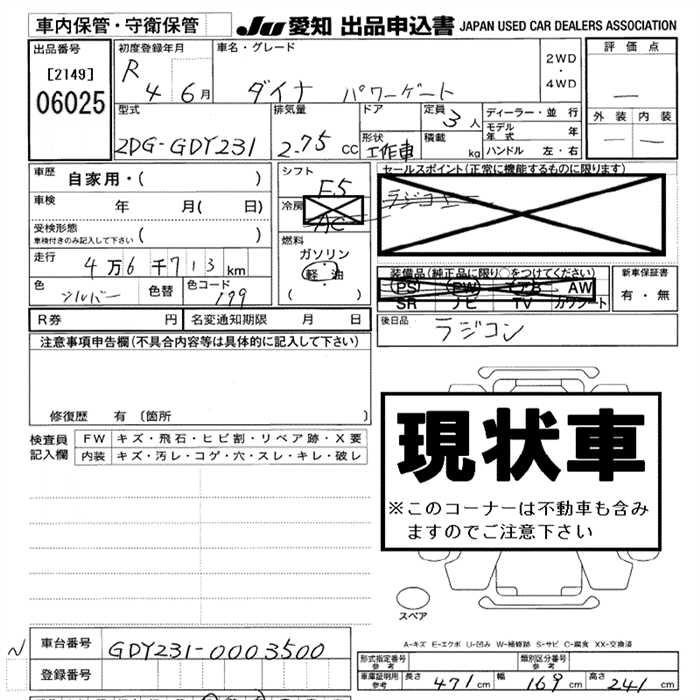 車内保管・守衛保管
JU 愛知 出品申込書 JAPAN USED CAR DEALERS ASSOCIATION
出品番号 初度登録年月 車名・グレード 2WD・4WD 評価点
[2149]
06025
R 4 6月 ダイナ パワーゲート
—
外装 内装
— —
型式 排気量 ドア 定員 3人 ディーラー・並行
2DG-GDY231 2.75cc 形状 工作車 積載 kg
モデル年式 年
ハンドル 左・右
車歴 自家用・( )
シフト F5
セールスポイント(正常に機能するものに限ります)
ラジコン
車検 年 月(日)
冷房 AC
受検形態
車検付きのみ記入して下さい ( )
燃料 ガソリン・軽油 ( )
走行 4万6千713km
装備品(純正品に限り○をつけてください) 新車保証書
PS PW エアB AW
SR ナビ TV カワシート
有・無
色 シルバー 色替 色コード 199
後日品 ラジコン
R券 円 名変通知期限 月 日
注意事項申告欄(不具合内容等は具体的に記入して下さい)
修復歴 有 〔箇所 〕
現状車
※このコーナーは不動車も含み
ますのでご注意下さい
検査員記入欄
FW キズ・飛石・ヒビ割・リペア跡・X要
内装 キズ・汚レ・コゲ・穴・スレ・キレ・破レ
スペア
A-キズ E-エクボ U-凹み W-補修跡 S-サビ C-腐食 XX-交換済
車台番号 GDY231-0003500
登録番号
形式指定番号 参考 類別区分番号 参考
車庫証明用 参考 長さ 471cm 幅 169cm 高さ 241cm